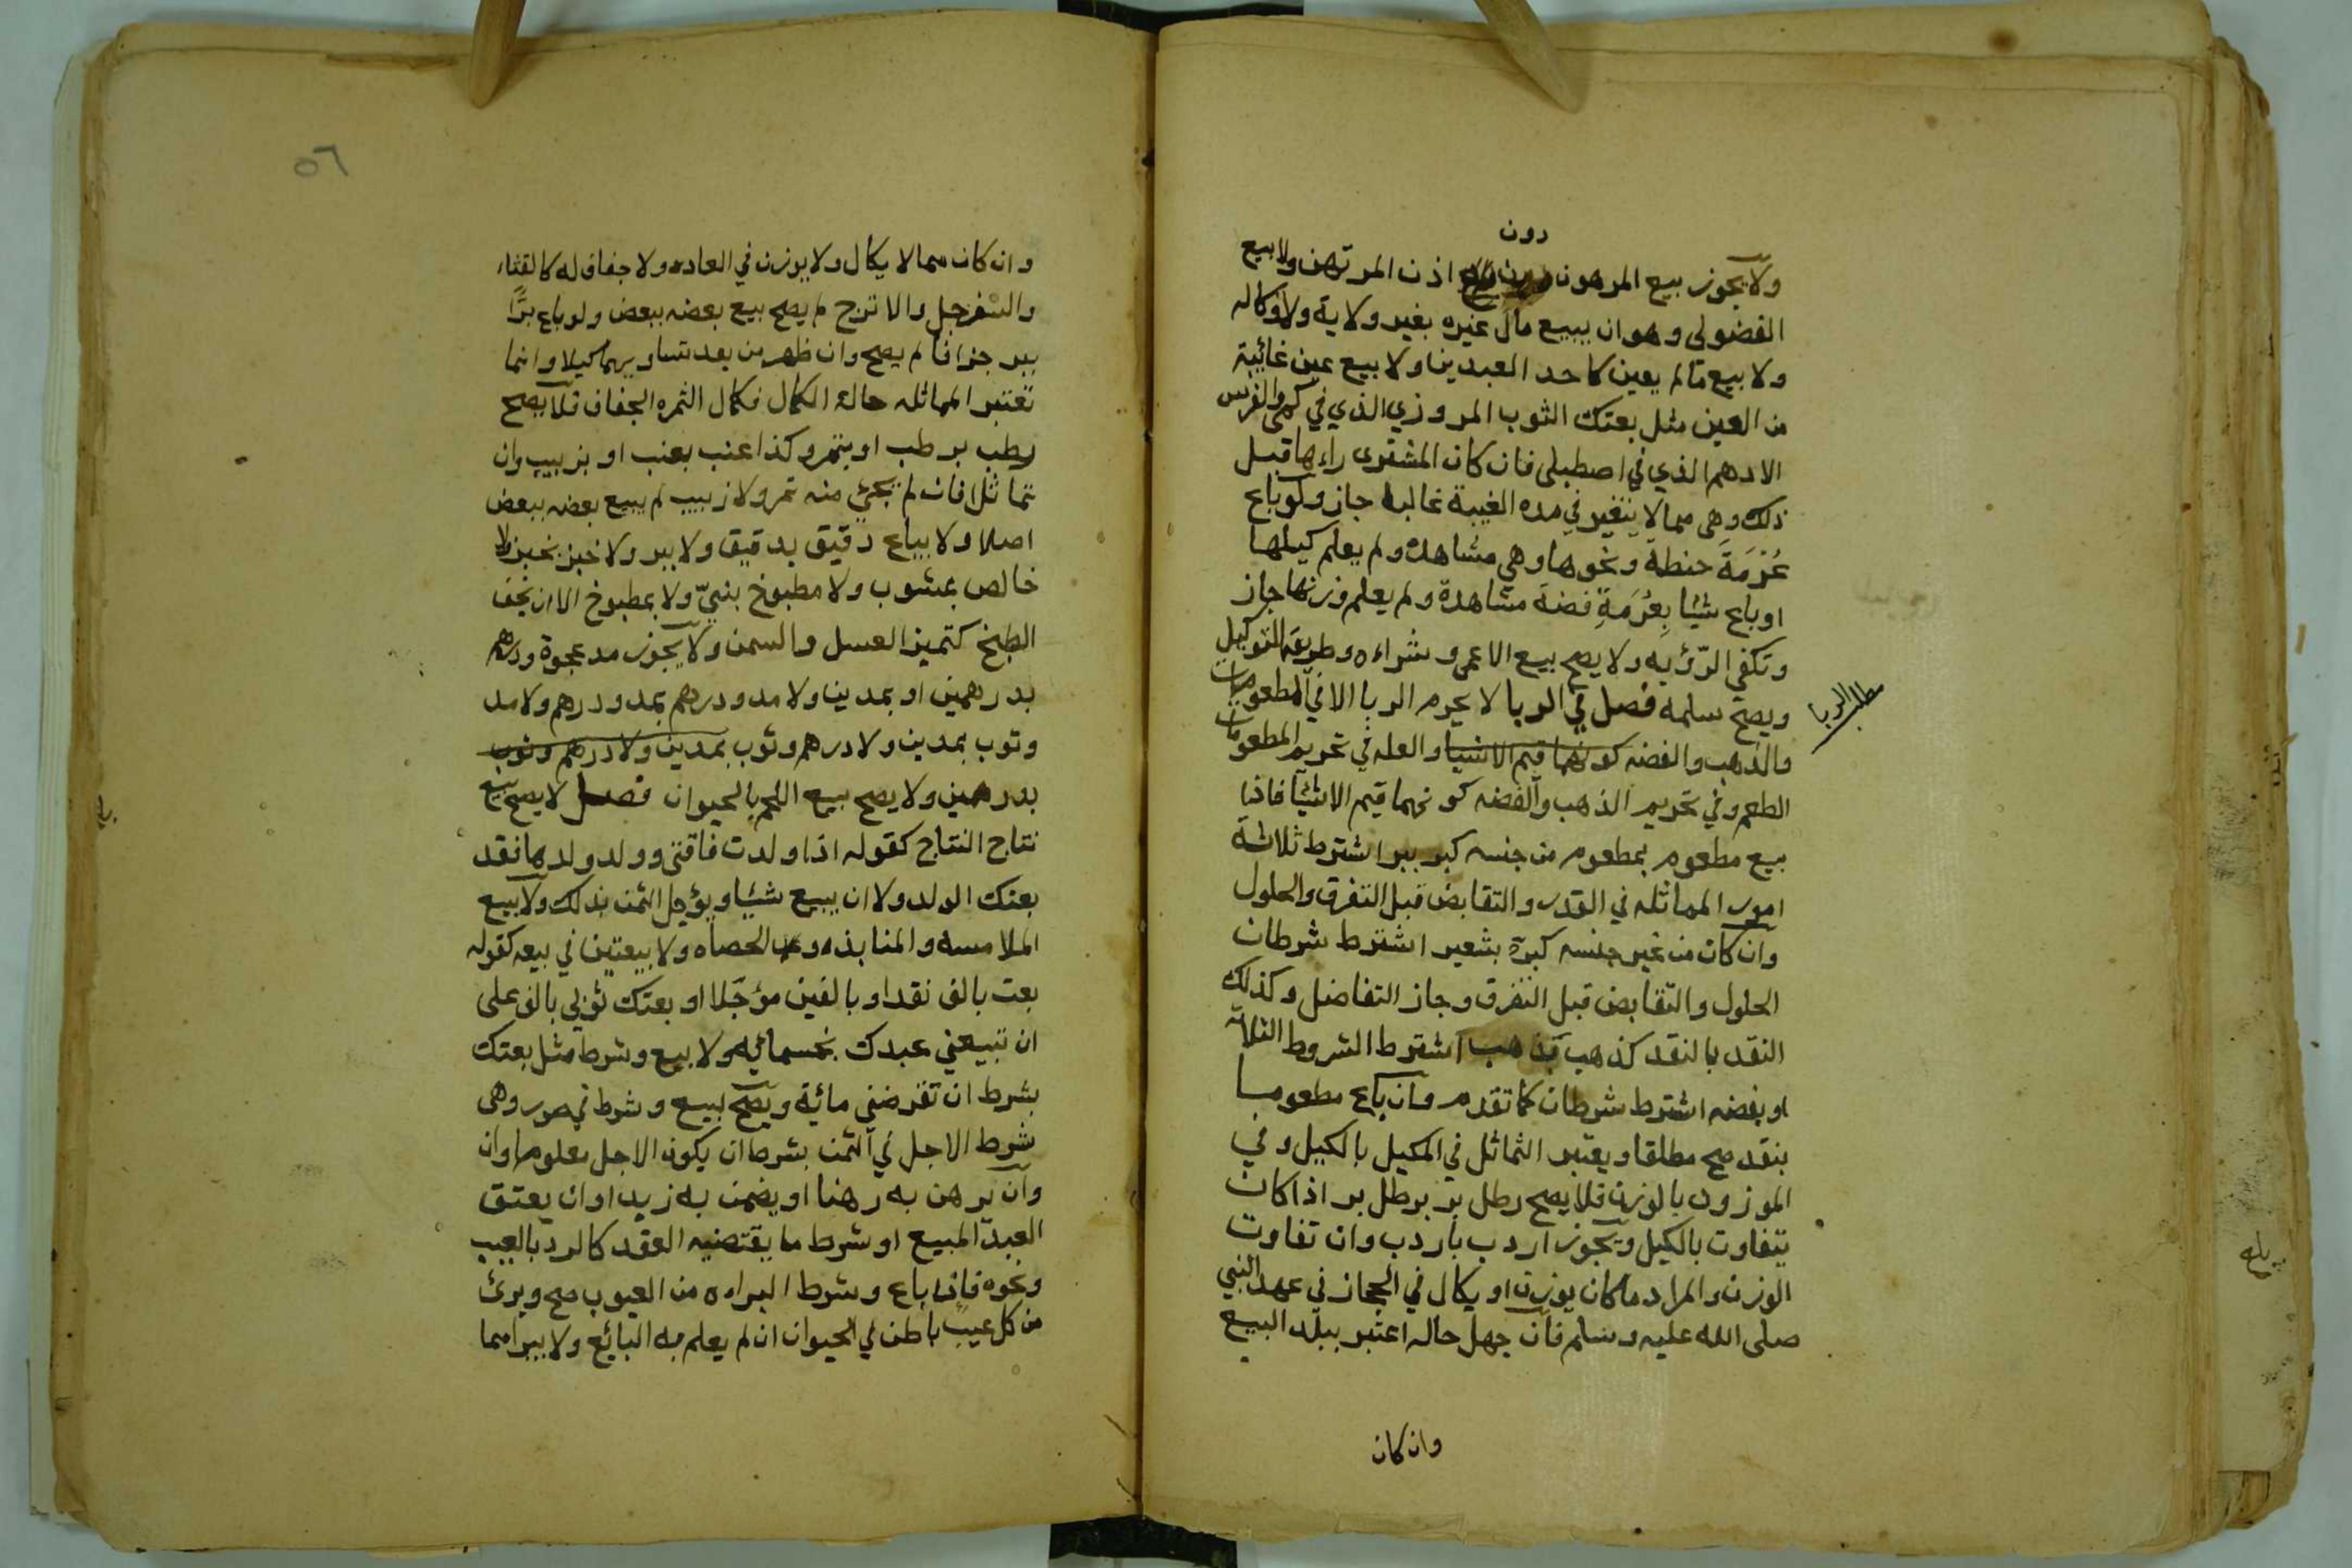 دون
ولا يجوز بيع المرهون دون اذن المرتهن ولا بيع
الفضولي وهو ان يبيع مال غيره بغير ولاية ولا وكاله
ولا بيع ما لم يعين كاحد العبدين ولا بيع عين غائبة
من العين مثل بعتك الثوب المروزي الذي في كمي والفرس
الادهم الذي في اصطبلي فان كان المشترى راءها قبل
ذلك وهى مما لا يتغير في مده الغيبة غالبا جاز ولو باع
عُرْمَةَ حنطة ونحوها وهي مشاهدة ولم يعلم كيلها
او باع شيئا بِعُرْمَةِ فضة مشاهدة ولم يعلم وزنها جاز
وتكفي الرؤيه ولا يصح بيع الاعمى وشراءه وطريقه التوكيل
ويصح سلمه فصل في الربا لا يحرم الربا الا في المطعومات
مطلب الربا
والذهب والفضه كونهما قيم الاشيا والعله في تحريم المطعومات
الطعم وفي تحريم الذهب والفضه كونهما قيم الاشيا فاذا
بيع مطعوم بمطعوم من جنسه كبر ببر اشترط ثلاثة
امور المماثله في القدر والتقابض قبل التفرق والحلول
وان كان من غير جنسه كبر بشعير اشترط شرطان
الحلول والتقابض قبل التفرق وجاز التفاضل وكذلك
النقد بالنقد كذهب بذهب اشترط الشروط الثلاثه
او بفضه اشترط شرطان كما تقدم وان باع مطعوما
بنقد صح مطلقا ويعتبر التماثل في المكيل بالكيل وفي
الموزون بالوزن فلا يصح رطل بر برطل بر اذا كان
يتفاوت بالكيل ويجوز اردب باردب وان تفاوت
الوزن والمراد ما كان يوزن او يكال في الحجاز في عهد النبي
صلى الله عليه وسلم فان جهل حاله اعتبر ببلد البيع
وان كان
٥٦
وان كان مما لا يكال ولا يوزن في العاده ولا جفاف له كالقثاء
والسفرجل والاترج لم يصح بيع بعضه ببعض ولو باع برًّا
ببر جزافا لم يصح وان ظهر من بعد تساويهما كيلا وانما
تعتبر المماثله حالة الكمال فكمال الثمره الجفاف فلا يصح
رطب برطب او بتمر وكذا عنب بعنب او بزبيب وان
تماثلا فان لم يجئ منه تمر ولا زبيب لم يبع بعضه ببعض
اصلا ولا يباع دقيق بدقيق ولا ببر ولا خبز بخبز ولا
خالص بمشوب ولا مطبوخ بنيّ ولا بمطبوخ الا ان يخف
الطبخ كتمييز العسل والسمن ولا يجوز مد عجوة ودرهم
بدرهمين او بمدين ولا مد ودرهم بمد ودرهم ولا مد
وثوب بمدين ولا درهم وثوب بمدين ولا درهم وثوب
بدرهمين ولا يصح بيع اللحم بالحيوان فصل لا يصح بيع
نتاج النتاج كقوله اذا ولدت ناقتي وولد ولدها فقد
بعتك الولد ولا ان يبيع شيئا ويؤجل الثمن بذلك ولا بيع
الملامسة والمنابذه و الحصاه ولا بيعتين في بيعه كقوله
بعت بالف نقدا وبالفين مؤجّلا او بعتك ثوبي بالف على
ان تبيعني عبدك بخمسمائه ولا بيع وشرط مثل بعتك
بشرط ان تقرضني مائة ويصح بيع وشرط في صور وهى
شرط الاجل في الثمن بشرط ان يكون الاجل معلوما وان
وان يرهن به رهنا او يضمن به زيد او ان يعتق
العبد المبيع او شرط ما يقتضيه العقد كالرد بالعيب
ونحوه فاذا باع وشرط البراءه من العيوب صح وبرئ
من كل عيب باطن في الحيوان ان لم يعلم به البائع ولا يبرا مما